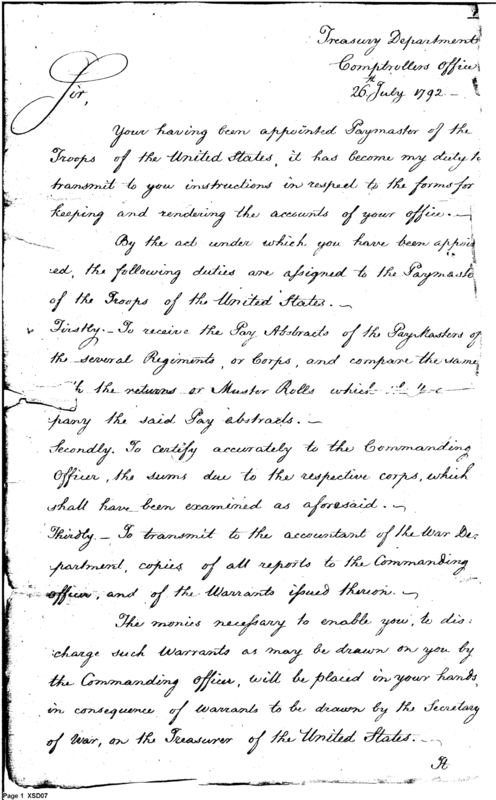 Treasury Department
Comptrollers Office
26th July 1792 —
Sir,
Your having been appointed Paymaster of the
Troops of the United States, it has become my duty to
transmit to you instructions in respect to the forms for
keeping and rendering the accounts of your office. —
By the act under which you have been appoint
ed, the following duties are assigned to the Paymaster
of the Troops of the United States. —
Firstly. — To receive the Pay Abstracts of the PayMasters of
the several Regiments, or Corps, and compare the same
the returns or Muster Rolls which
pany the said Pay abstracts. —
Secondly. To certify accurately to the Commanding
Officer, the sums due to the respective corps, which
shall have been examined as aforesaid. —
Thirdly — To transmit to the accountant of the War De=
partment, copies of all reports to the Commanding
officer, and of the Warrants issued thereon. —
The monies necessary to enable you, to dis:
charge such Warrants as may be drawn on you by
the Commanding Officer, will be placed in your hands,
in consequence of Warrants to be drawn by the Secretary
of War, on the Treasurer of the United States. —
It
Page 1 XSD07